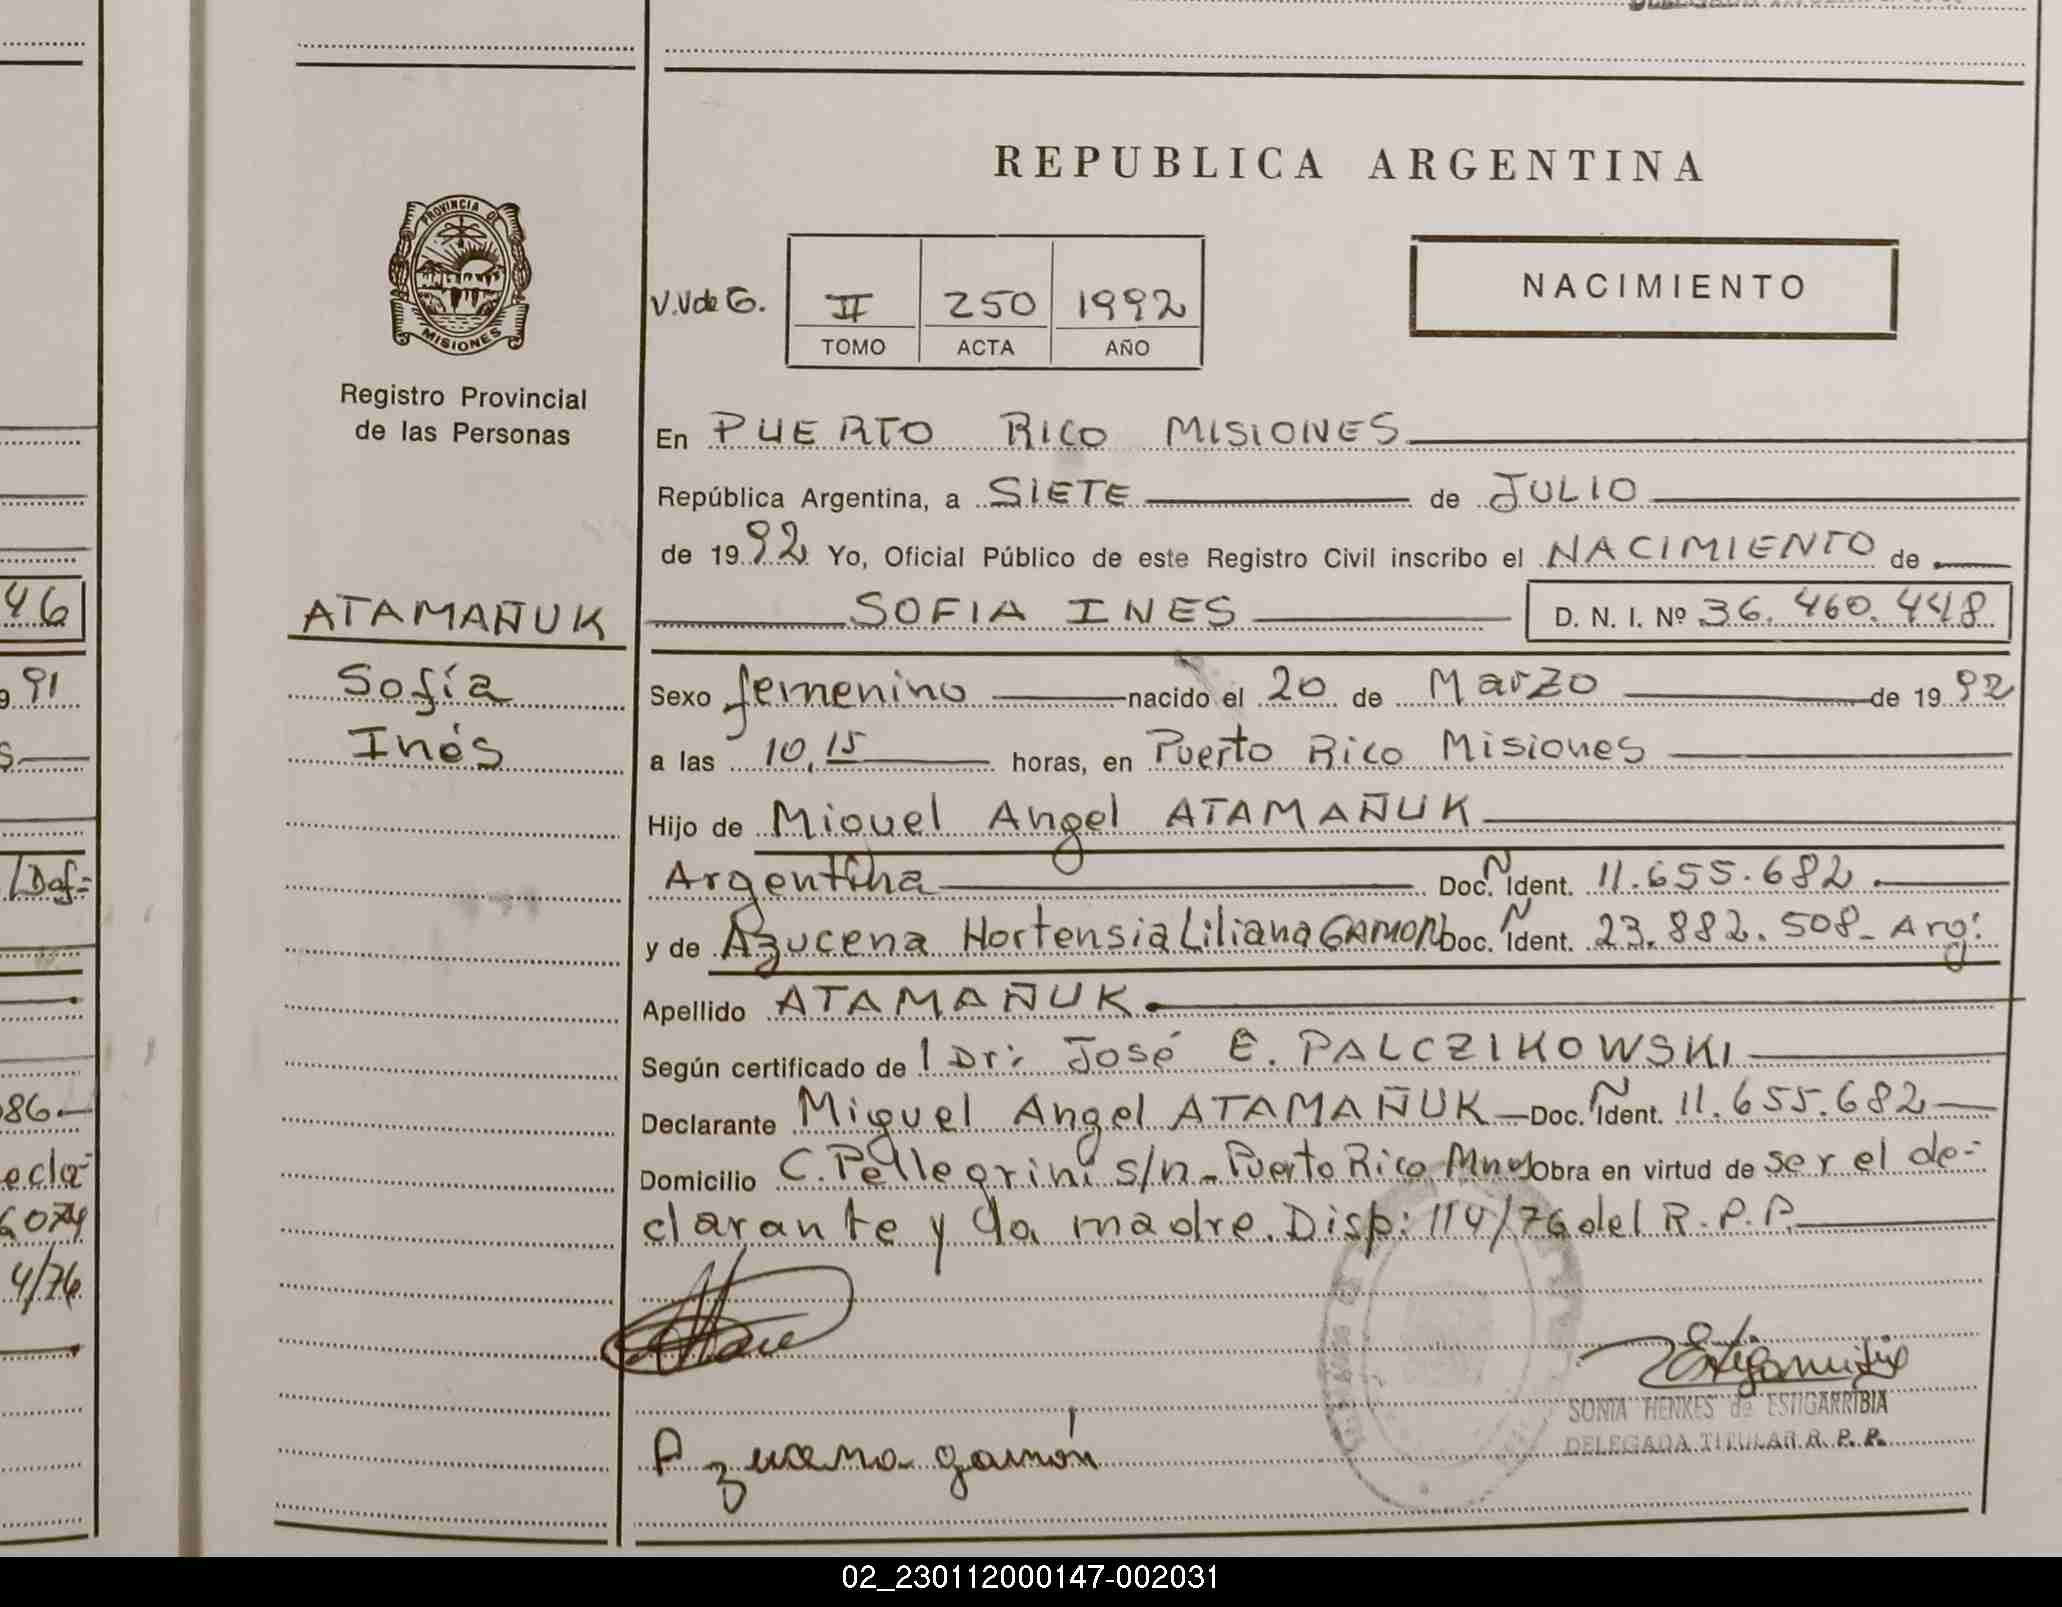 REPUBLICA ARGENTINA
PROVINCIA DE
MISIONES
Registro Provincial
de las Personas
V.V de G.
II 250 1992
TOMO ACTA AÑO
NACIMIENTO
En PUERTO RICO MISIONES
República Argentina, a SIETE de JULIO
de 1992 Yo, Oficial Público de este Registro Civil inscribo el NACIMIENTO de
46
ATAMAÑUK
SOFIA INES D. N. I. Nº 36.460.448
91
Sofía
Sexo femenino nacido el 20 de Marzo de 1992
Inés
a las 10,15 horas, en Puerto Rico Misiones
Hijo de Miguel Angel ATAMAÑUK
Argentina Doc. Ñ Ident. 11.655.682
y de Azucena Hortensia Liliana GAMON Doc. Ñ Ident. 23.882.508- Arg:
Apellido ATAMAÑUK
Según certificado de l Dr: José E. PALCZIKOWSKI
86
Declarante Miguel Angel ATAMAÑUK Doc. Ñ Ident. 11.655.682
ecla-
Domicilio C. Pellegrini s/n- Puerto Rico Mnes Obra en virtud de ser el de-
clarante y la madre. Disp: 114/76 del R. P. P.
4/76
Azucena gamón
SONIA HENKES de ESTIGARRIBIA
DELEGADA TITULAR R. P. P.
02_230112000147-002031